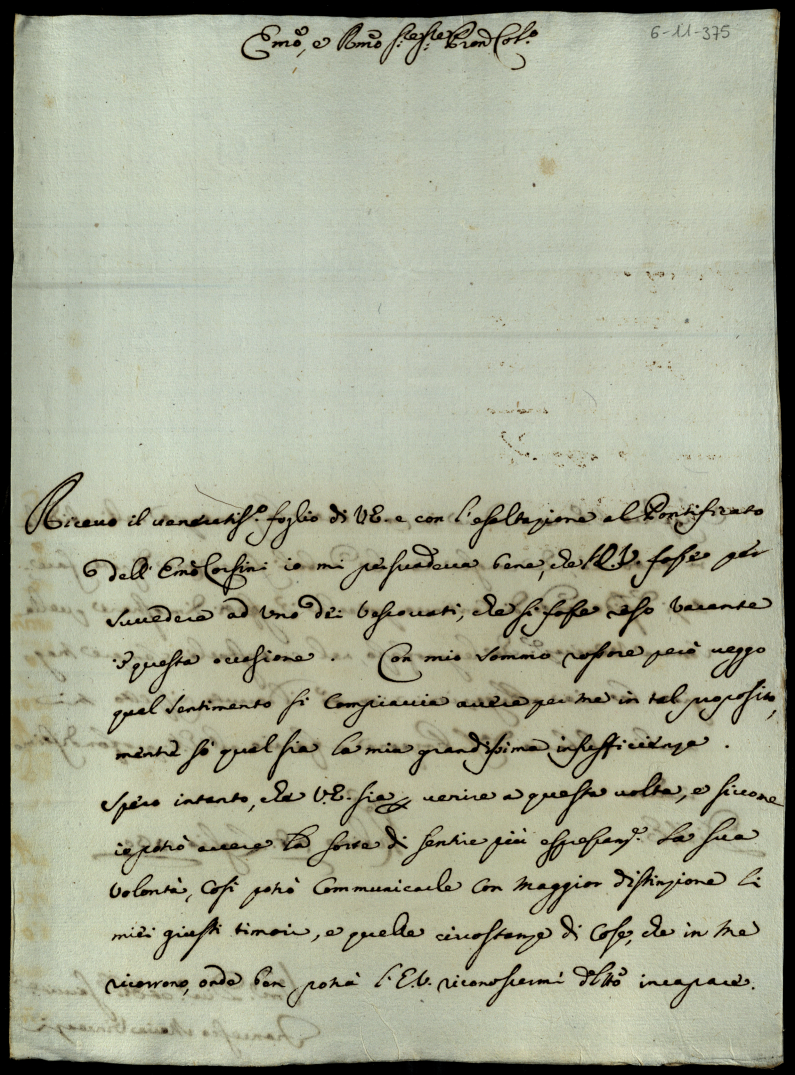 6-11-375
Emo, e Rmo Sig.re Sig.re Pron Col.o
Ricevo il veneratiss.o foglio di V.E. e con l'esaltazione al Pontificato
dell'Emo Corsini io mi persuadeva bene, che l'E.V. fosse per
succedere ad uno dei Vescovati, che si fosse reso vacante
in questa occasione. Con mio sommo rossore però veggo
qual sentimento si compiaccia avere per me in tal proposito,
mentre sò qual sia la mia grandissima insufficienza.
Spero intanto, che V.E. sia per venire a questa volta, e siccome
io potrò avere la sorte di sentire più espressam.e la sua
volontà, così potrò communicarle con maggior distinzione li
miei giusti timori, e quelle circostanze di cose, che in me
ricorrono, onde ben potrà l'E.V. riconoscermi d.tto incapace.